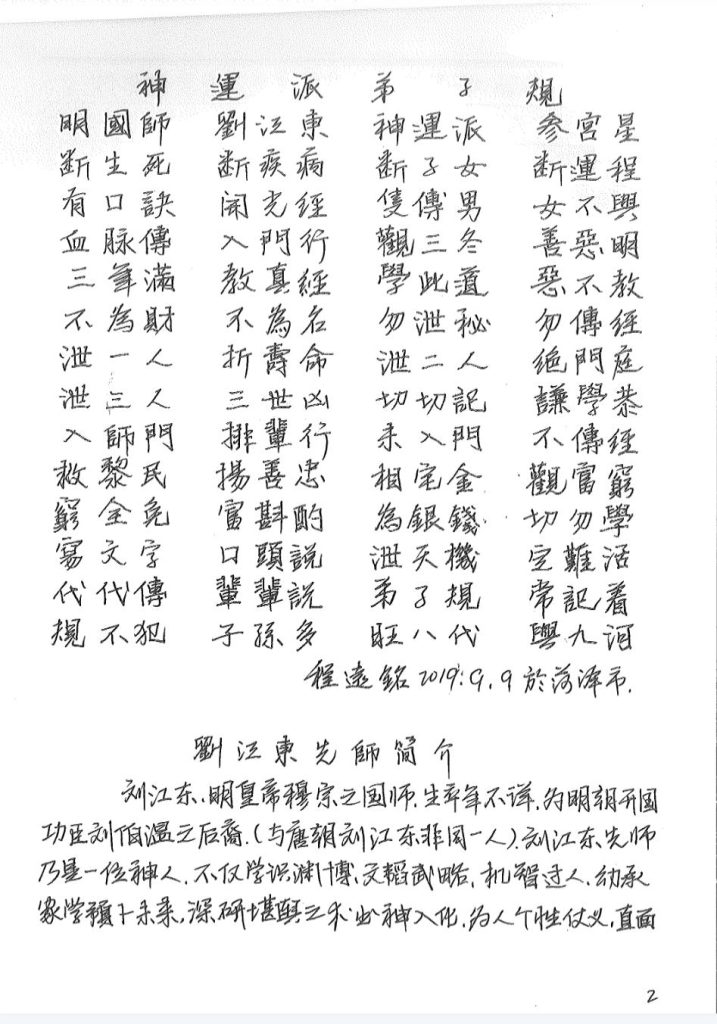 神運派弟子規
明國師 劉江東 神運派 參宮星
断生死 断疾病 断子女 断運程
有口訣 開光經 隻傳男 女不與
血脉傳 入門行 觀三冬 善惡明
三年滿 教真經 學此道 惡不教
不為財 不為名 勿泄秘 勿傳經
泄一人 折壽命 泄二人 绝門庭
泄三人 三世凶 切切記 謙學恭
入師門 排輩行 未入門 不傳經
救黎民 揚善忠 相宅金 觀富窮
窮全免 富斟酌 為銀錢 切勿學
寫文字 口頭説 泄天機 定難活
代代傳 輩輩説 弟子規 常記着
規不犯 子孫多 旺八代 與九河
程遠銘2019.9.9於菏泽市.
劉江東先師简介
刘江东,明皇帝穆宗之国师.生卒年不详.为明朝开国
功臣刘伯温之后裔.(与唐朝刘江东非同一人).刘江东先师
乃是一位神人.不仅学识渊博,文韬武略,机智过人.幼承
家学预卜未来,深研堪舆之术出神入化,为人个性仗义.直面
2